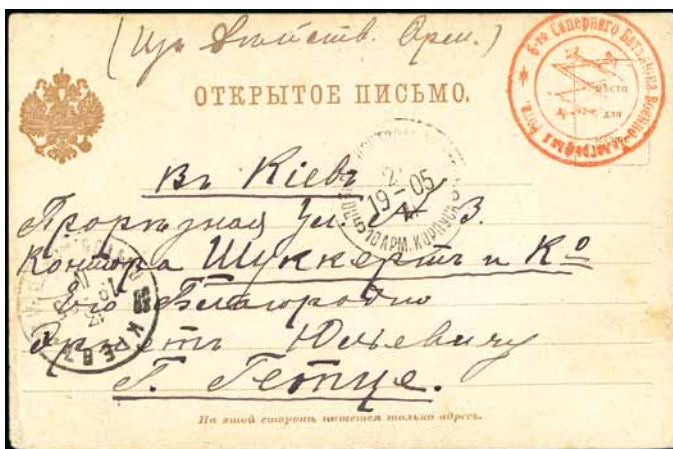 (Изъ Действ. Арм.)
6-го Сапернаго Баталіона Военно-Телеграфная Рота.
мѣсто
для
ОТКРЫТОЕ ПИСЬМО.
Въ Кіевъ
19-05
10 АРМ. КОРПУСЪ
Прорѣзная Ул. № 3.
Контора Шуккертъ и Ко
Его Благородію
КІЕВЪ
Эрнсту Юльевичу
Г. Гетце.
На этой сторонѣ пишется только адресъ.